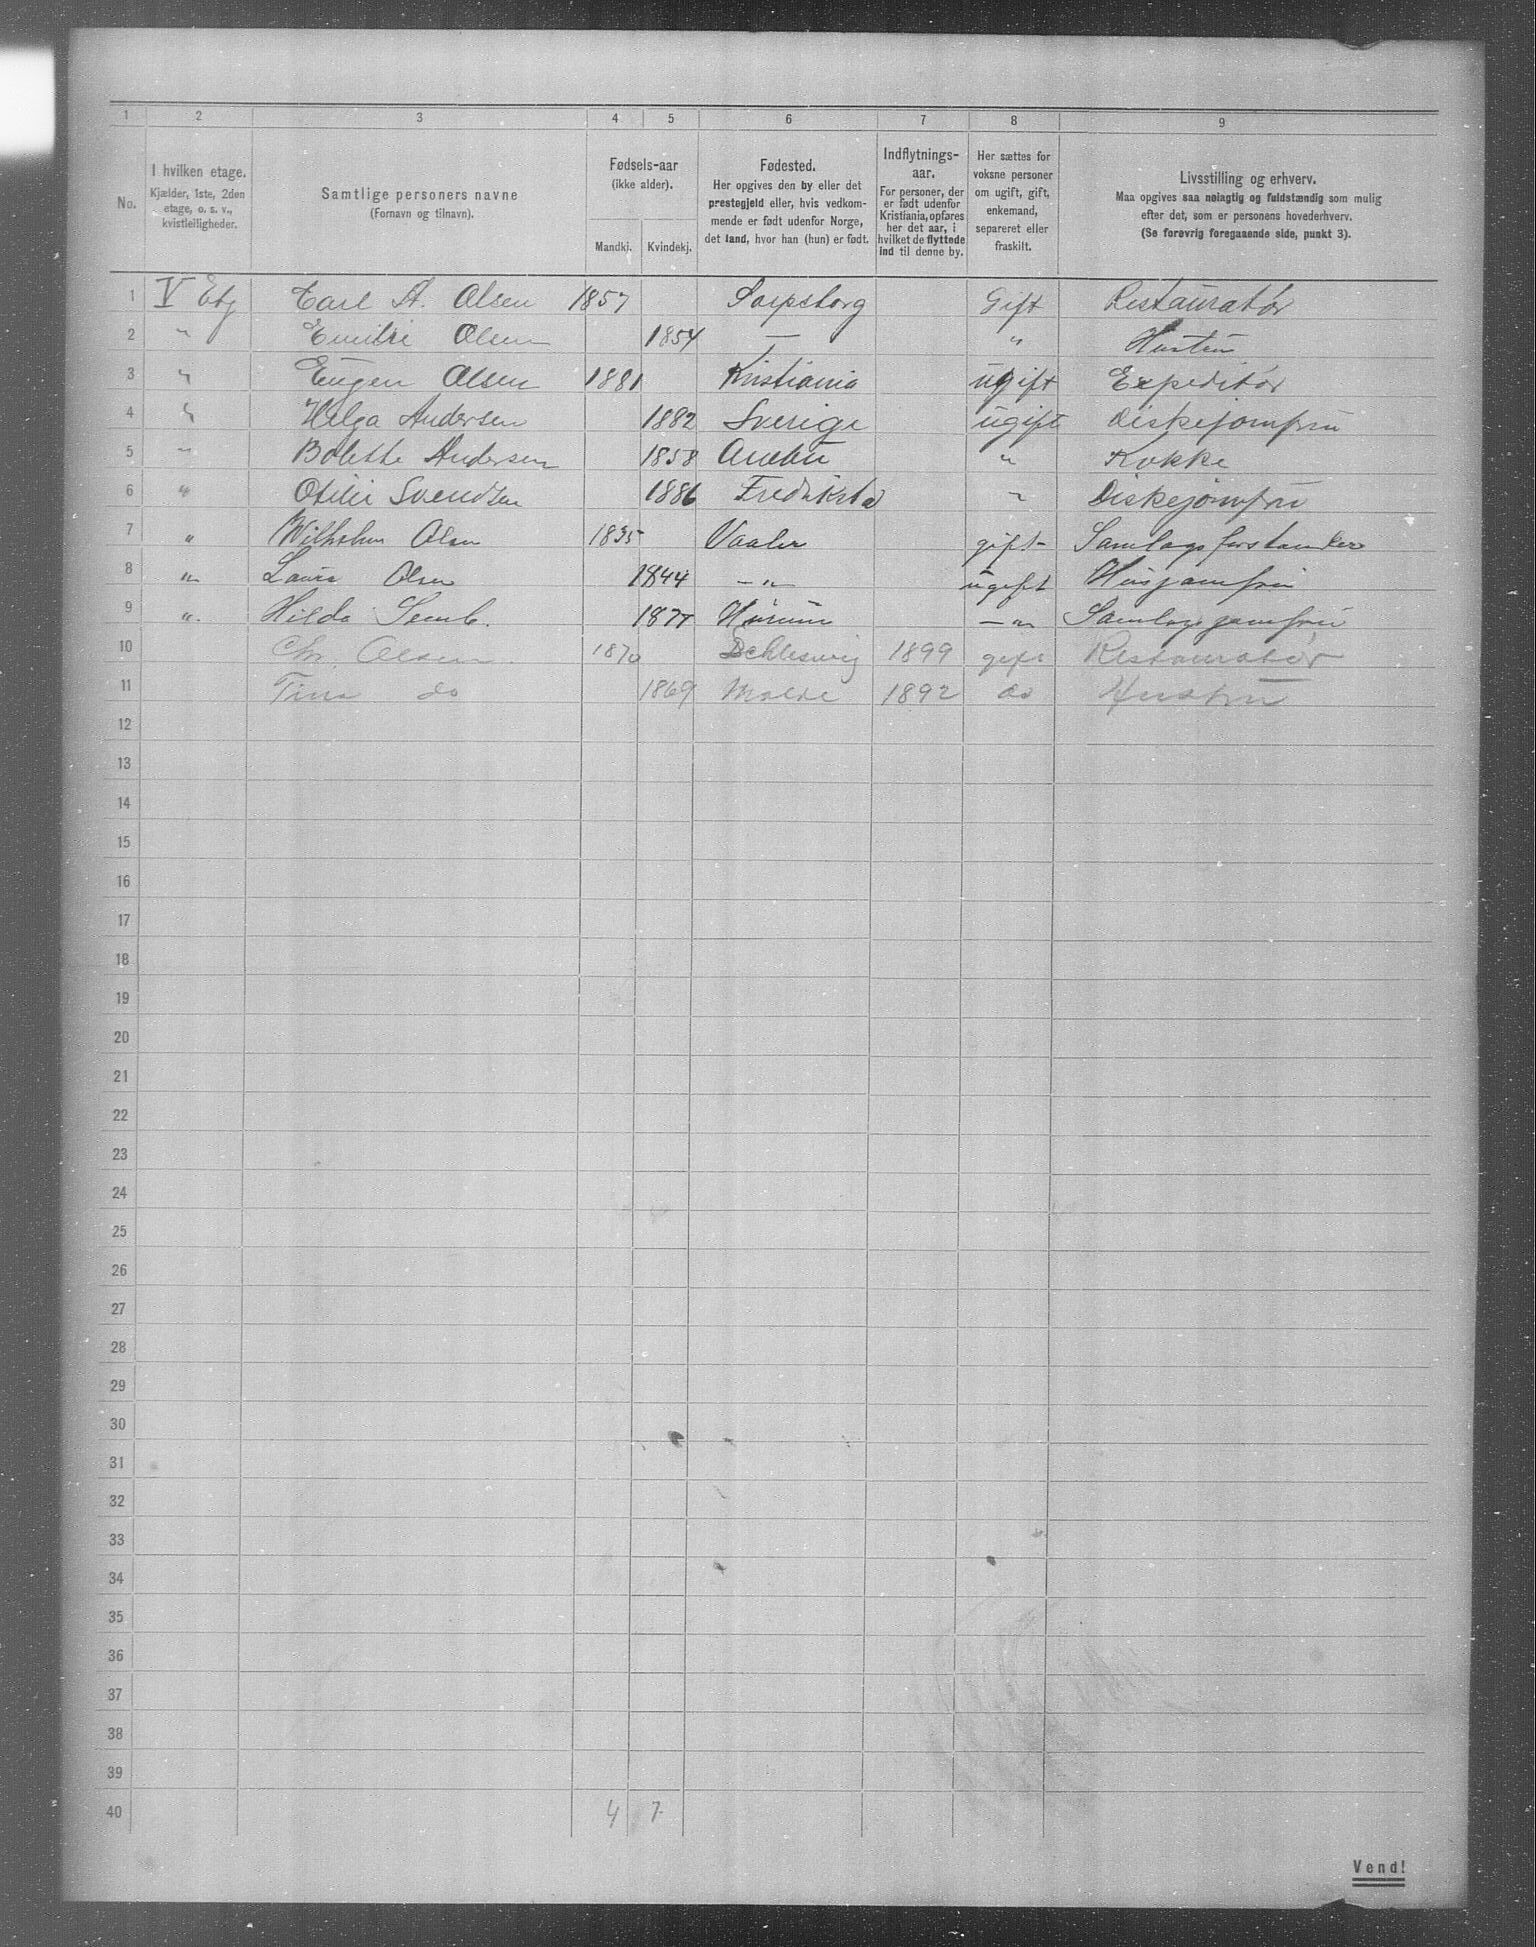 1 2 3 4 5 6 7 8 9
No.
I hvilken etage.
Kjælder, 1ste, 2den
etage, o. s. v.,
kvistleiligheder.
Samtlige personers navne
(Fornavn og tilnavn).
Fødsels-aar
(ikke alder).
Mandkj. Kvindekj.
Fødested.
Her opgives den by eller det
prestegjeld eller, hvis vedkom-
mende er født udenfor Norge,
det land, hvor han (hun) er født.
Indflytnings-
aar.
For personer, der
er født udenfor
Kristiania, opføres
her det aar, i
hvilket de flyttede
ind til denne by.
Her sættes for
voksne personer
om ugift, gift,
enkemand,
separeret eller
fraskilt.
Livsstilling og erhverv.
Maa opgives saa nøiagtig og fuldstændig som mulig
efter det, som er personens hovederhverv.
(Se forøvrig foregaaende side, punkt 3).
1 V Etg Carl A. Olsen 1857 Sarpsborg Gift Restauratør
2 " Emilie Olsen 1854 — " Hustru
3 " Eugen Olsen 1881 Kristiania ugift Expeditør
4 " Helga Andersen 1882 Sverige ugift Diskejomfru
5 " Bolette Andersen 1858 " Kokke
6 " Otilie Svendsen 1886 Fredrikstad " Diskejomfru
7 " Wilhelm Olsen 1835 Vaaler gift Samlagsforstander
8 " Laura Olsen 1844 —"— ugift Husjomfru
9 " Hilda Semb. 1877 —"— Samlagsjomfru
10 Chr. Olsen 1870 Schleswig 1899 gift Restauratør
11 Tina do 1869 Molde 1892 do Hustru
12
13
14
15
16
17
18
19
20
21
22
23
24
25
26
27
28
29
30
31
32
33
34
35
36
37
38
39
40 4 7
Vend!